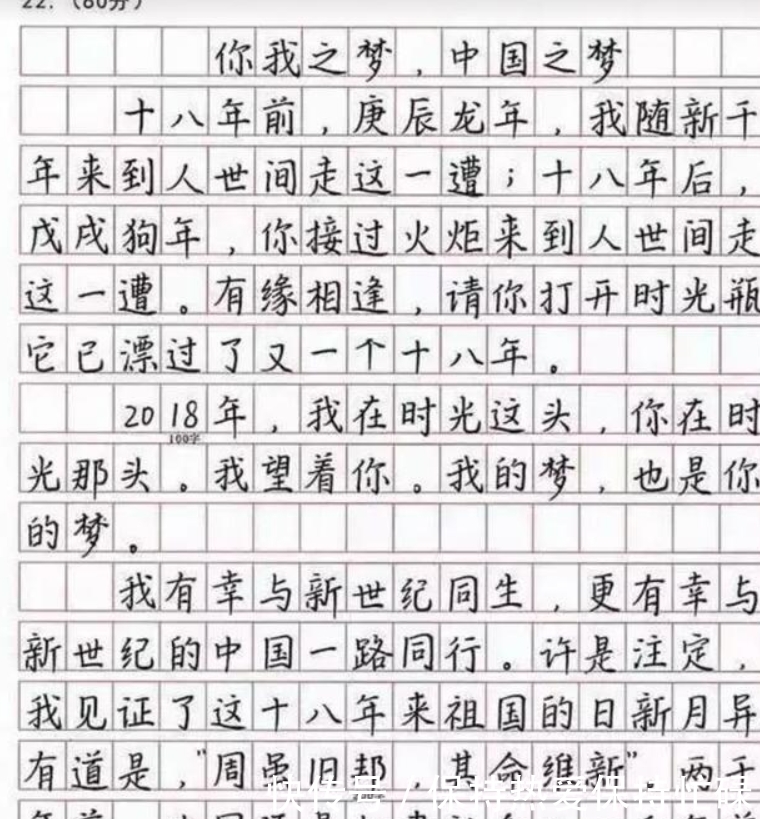 22.（60分）
你我之梦，中国之梦
十八年前，庚辰龙年，我随新千
年来到人世间走这一遭；十八年后，
戊戌狗年，你接过火炬来到人世间走
这一遭。有缘相逢，请你打开时光瓶
它已漂过了又一个十八年。
2018年，我在时光这头，你在时
100字
光那头。我望着你。我的梦，也是你
的梦。
我有幸与新世纪同生，更有幸与
新世纪的中国一路同行。许是注定，
我见证了这十八年来祖国的日新月异
有道是，“周虽旧邦，其命维新”两千
快传号/保持热爱保持忙碌